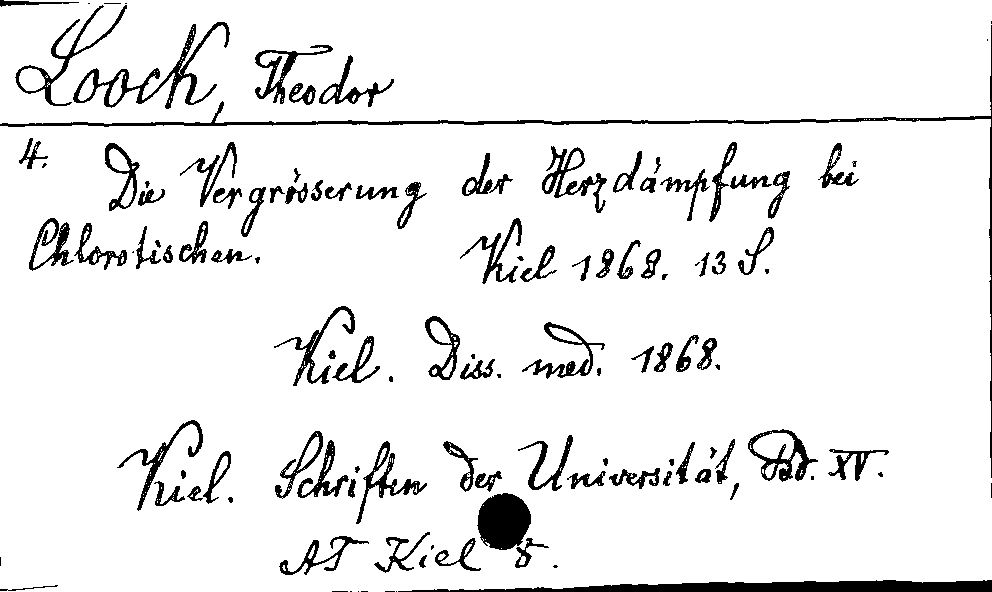 Loock, Theodor
4. Die Vergrösserung der Herzdämpfung bei
Chlorotischen. Kiel 1868. 13 S.
Kiel. Diss. med. 1868.
Kiel. Schriften der Universität, Bd. XV.
AT Kiel 8.